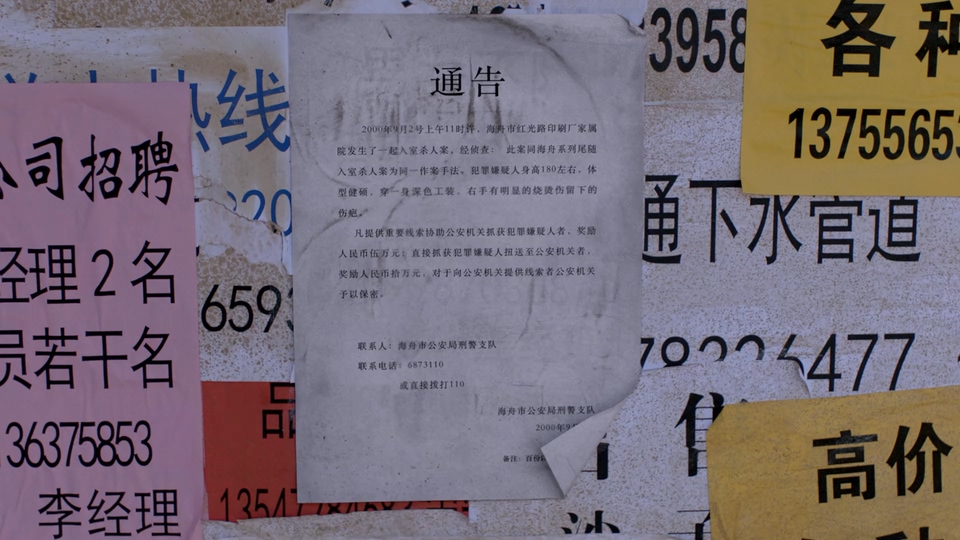 热线
公司招聘
经理2名
员若干名
36375853
李经理
通告
2000年9月2号上午11时许，海舟市红光路印刷厂家属
院发生了一起入室杀人案。经侦查：此案同海舟系列尾随
入室杀人案为同一作案手法。犯罪嫌疑人身高180左右，体
型健硕，穿一身深色工装，右手有明显的烧烫伤留下的
伤疤。
凡提供重要线索协助公安机关抓获犯罪嫌疑人者，奖励
人民币伍万元；直接抓获犯罪嫌疑人扭送至公安机关者，
奖励人民币拾万元。对于向公安机关提供线索者公安机关
予以保密。
联系人：海舟市公安局刑警支队
联系电话：6873110
或直接拨打110
海舟市公安局刑警支队
2000年9
备注：
6593
3958
各种
1375565
通下水官道
6477
售
高价